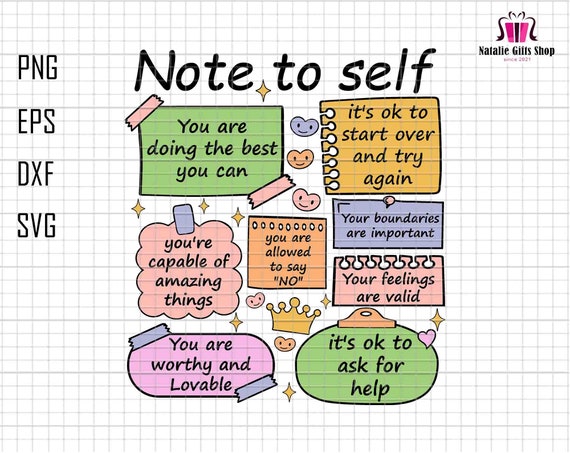 Natalie Gifts Shop
since 2021
PNG
EPS
DXF
SVG
Note to self
You are
doing the best
you can
it's ok to
start over
and try
again
you're
capable of
amazing
things
you are
allowed
to say
"NO"
Your boundaries
are important
Your feelings
are valid
You are
worthy and
Lovable
it's ok to
ask for
help